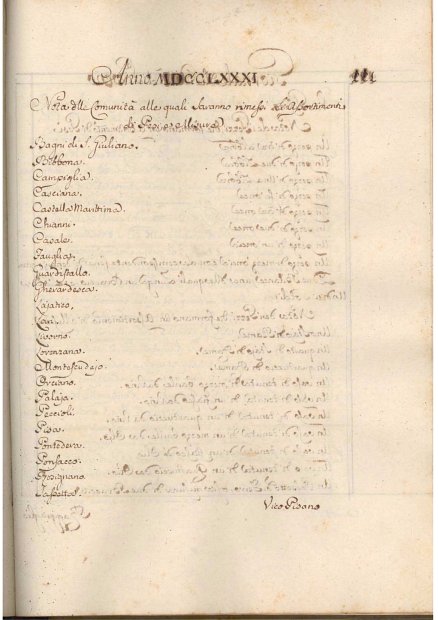 Anno MDCCLXXXI
Nota delle Comunità alle quali saranno rimessi gli Assortimenti
di Pesi, e Misure
Bagni di S. Giuliano.
Bibbona.
Campiglia.
Casciana.
Castellina Marittima.
Chianni.
Casale.
Fauglia.
Guardistallo.
Gherardesca.
Lajatico.
Lari.
Livorno.
Lorenzana.
Montescudajo.
Orciano.
Palaja.
Peccioli.
Pisa.
Pontedera.
Ponsacco.
Rosignano.
Sassetta.
Vico Pisano